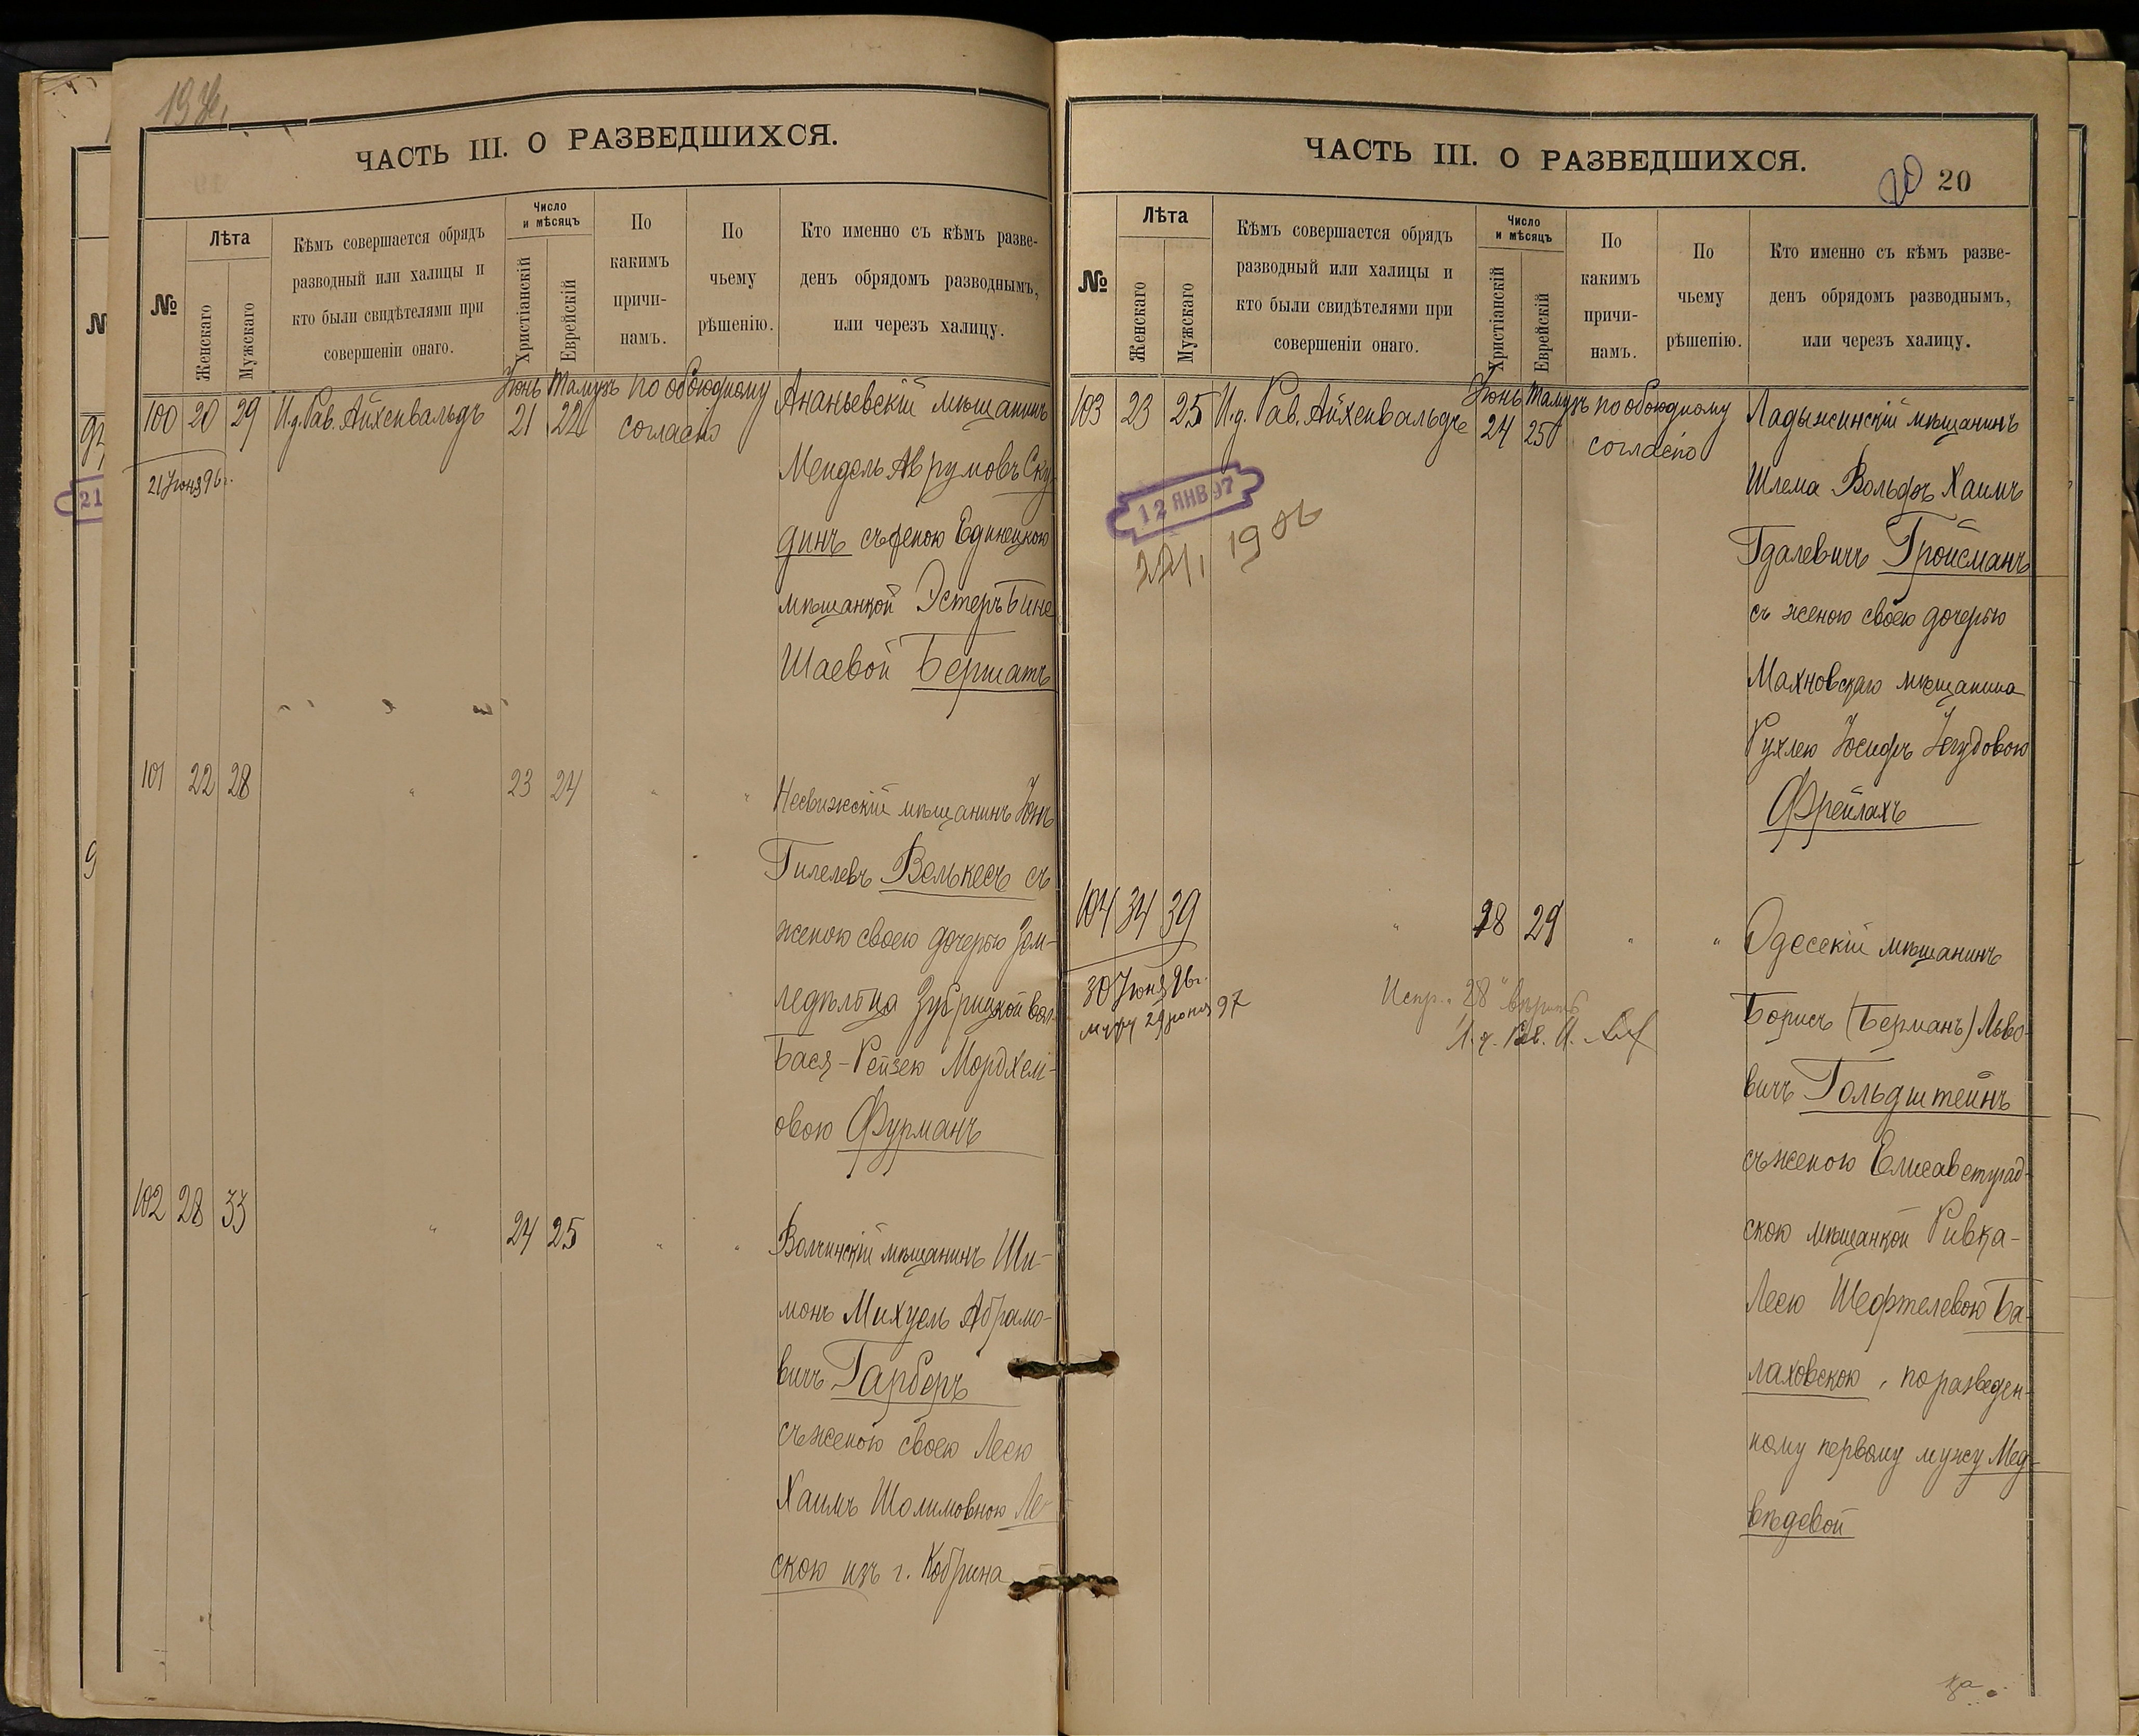 ЧАСТЬ III. О РАЗВЕДШИХСЯ.
№
Лѣта
Женскаго
Мужскаго
Кѣмъ совершается обрядъ
разводный или халицы и
кто были свидѣтелями при
совершеніи онаго.
Число
и мѣсяцъ
Христіанскій
Еврейскій
По
какимъ
причи-
намъ.
По
чьему
рѣшенію.
Кто именно съ кѣмъ разве-
денъ обрядомъ разводнымъ,
или черезъ халицу.
Юнь Тамузъ по обоюдному
100 20 29 И.д. Рав. Айхенвальдъ 21 22 согласію Ананьевскій мѣщанинъ
21 Юня 96 г.
Мендель Аврумовъ Ску-
динъ съ женою Единецкою
мѣщанкой Эстеръ Бине
Шаевой Бершатъ
101 22 28 " 23 24 " " Несвижскій мѣщанинъ Юнъ
Гилелевъ Велькесъ съ
женою своею дочерью Зем-
ледѣльца Згурицкой вол.
Бася-Рейзею Мордхели-
овою Фурманъ
102 28 33 " 24 25 " " Волчинскій мѣщанинъ Ши-
монъ Михуель Абрамо-
вичъ Гарберъ
съ женою своею Леею
Хаимъ Шолимовною Ле-
скою изъ г. Кобрина
ЧАСТЬ III. О РАЗВЕДШИХСЯ.
20 20
№
Лѣта
Женскаго
Мужскаго
Кѣмъ совершается обрядъ
разводный или халицы и
кто были свидѣтелями при
совершеніи онаго.
Число
и мѣсяцъ
Христіанскій
Еврейскій
По
какимъ
причи-
намъ.
По
чьему
рѣшенію.
Кто именно съ кѣмъ разве-
денъ обрядомъ разводнымъ,
или черезъ халицу.
Юнь Тамузъ по обоюдному
103 23 25 И.д. Рав. Айхенвальдъ 24 25 согласію Ладыжинскій мѣщанинъ
12 ЯНВ 97
Шлема Вольфъ Хаимъ
Гдалевичъ Гройсманъ
съ женою своею дочерью
Махновскаго мѣщанина
Рухлею Юсифъ Югудовою
Фрейлахъ
104 34 39 " 28 29 " " Одесскій мѣщанинъ
30 Юня 96 г.
29 юня 97
Испр. "28" вѣрить
И.д. Рав.
Борисъ (Берманъ) Льво-
вичъ Гольдштейнъ
съ женою Елисаветград-
скою мѣщанкой Ривка-
Леею Шефтелевою Ба-
лаховскою, по разведен-
ному первому мужу Мед-
вѣдевой